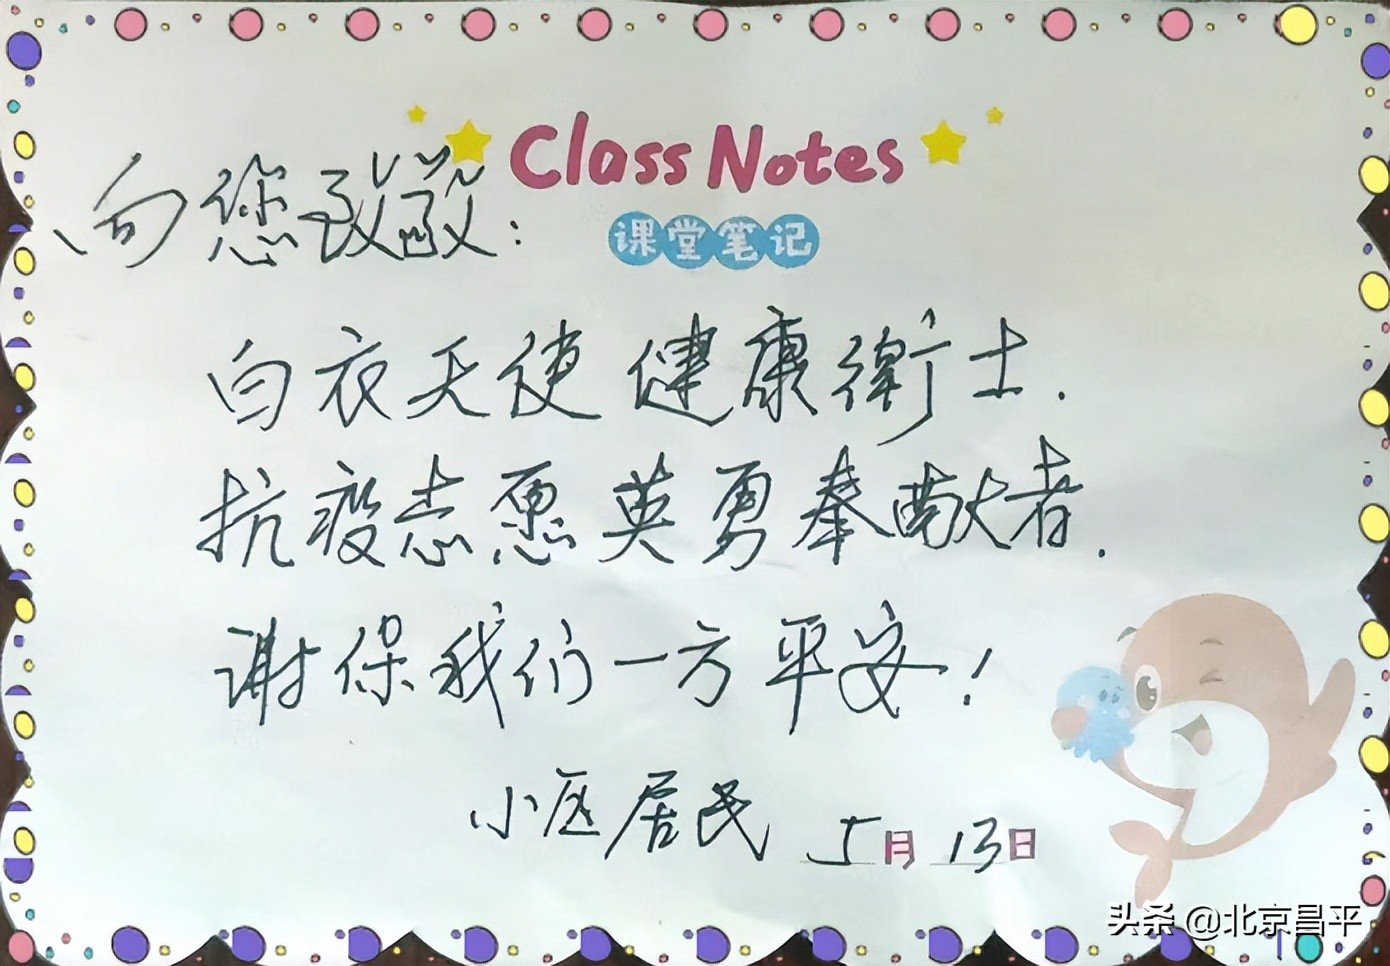 Class Notes
课堂笔记
向您致敬:
白衣天使 健康衛士.
抗疫志愿英勇奉献者.
谢保我们一方平安!
小区居民 5月13日
头条 @北京昌平